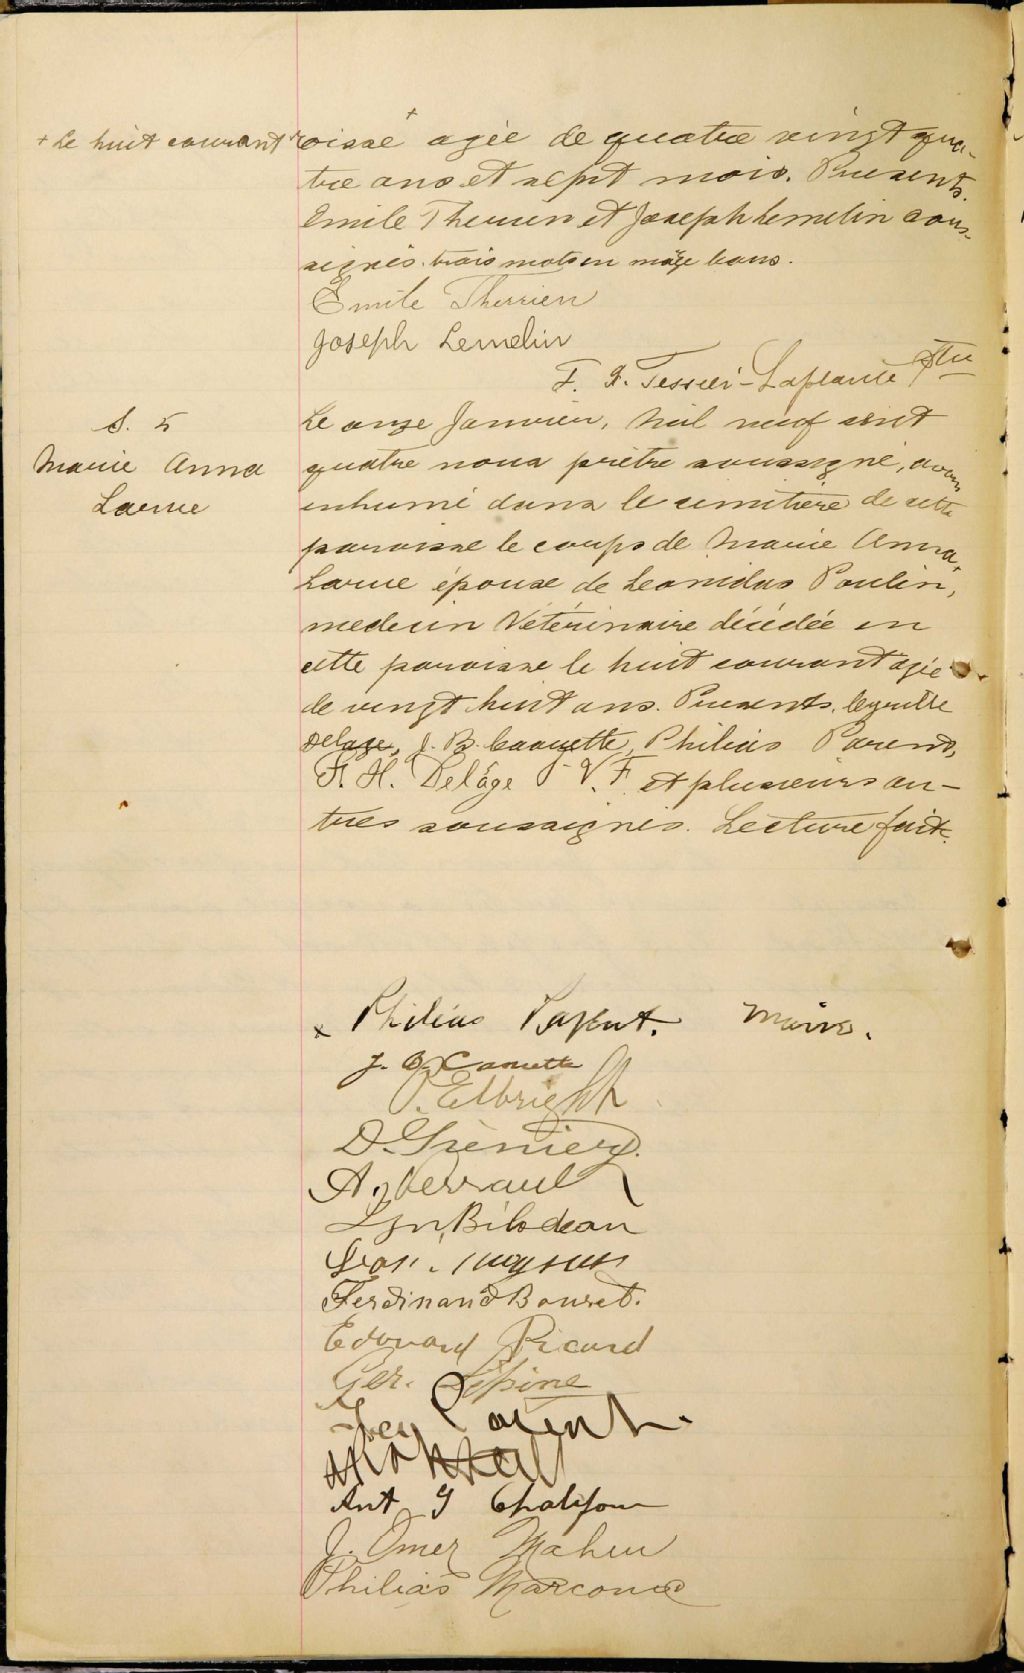 + Le huit courant
roisse + agée de quatre vingt qua-
tre ans et sept mois. Presents.
Emile Therrien et Joseph Lemelin sous-
signés. trois mots en marge bons.
Emile Therrien
Joseph Lemelin
F. F. Tessier-Laplante Ptre
S. 5
Marie Anna
Larue
Le onze Janvier, mil neuf cent
quatre nous prêtre soussigné, avons
inhumé dans le cimitière de cette
paroisse le corps de Marie Anna
Larue épouse de Leonidas Poulin,
medecin Vétérinaire décédée en
cette paroisse le huit courant agée
de vingt huit ans. Presents,
Delage, J. B. Caouette, Philias Parent,
F. H. Delâge J. V. F. et plusieurs au-
tres soussignés. Lecture faite.
x Philias Parent. Maire.
J. B. Caouette
P. Elbright
D. Grenier
A. Verrault
Lgn. Bilodeau
Ferdinand Bouret.
Edouard Picard
Ger. Lépine
Parent
Ant G Chalifour
J. Omer Maheu
Philias Marcoux